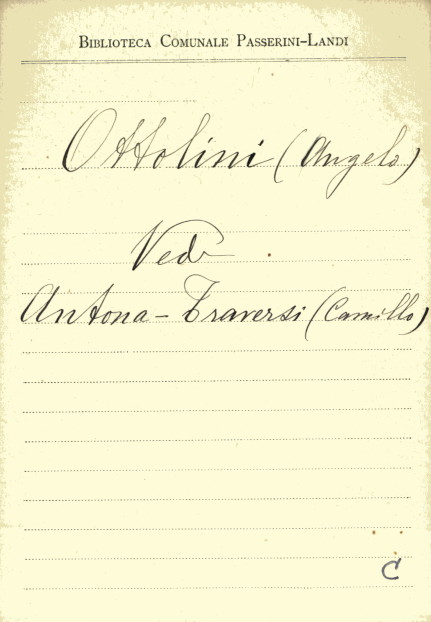 BIBLIOTECA COMUNALE PASSERINI-LANDI
Ottolini (Angelo)
Vedi
Antona-Traversi (Camillo)
C